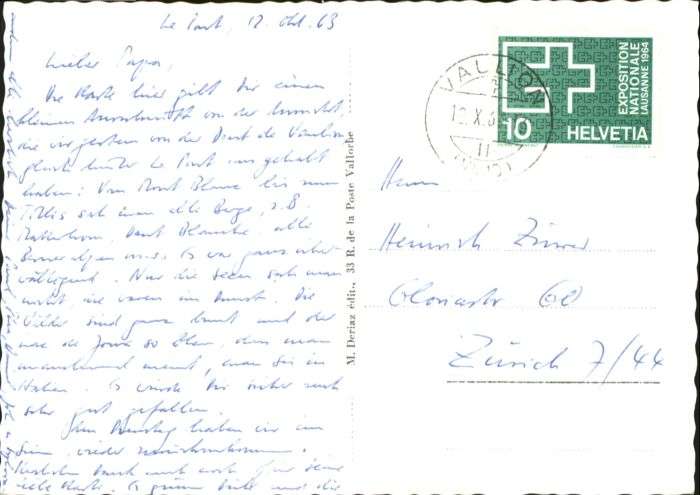 Le Pont, 12. Okt. 63
Lieber Papa,
Die Karte hier gibt Dir einen
kleinen von der Aussicht
die wir gestern von der Dent de Vaulion
gleich hinter Le Pont aus gehabt
haben: Vom Mont Blanc bis zum
Titlis sah man alle Berge, z.B.
Matterhorn, Dent Blanche, alle
Berneralpen usw. Es war ganz über-
wältigend. Nur die Seen sah man
nicht, sie waren im Dunst. Die
Wälder sind ganz bunt und der
Lac de Joux so blau, dass man
meint, man sei in
Italien. Es würde Dir sicher auch
sehr gut gefallen.
haben wir im
Sinn, wieder
Herzlichen Dank auch noch für Deine
liebe Karte. Es und die
M. Deriaz édit., 33 R. de la Poste Vallorbe
VALLION
12.X.6
11
EXPOSITION
NATIONALE
LAUSANNE 1964
10 HELVETIA
Herrn
Heinrich Zinner
Gloriastr 68
Zürich 7/44